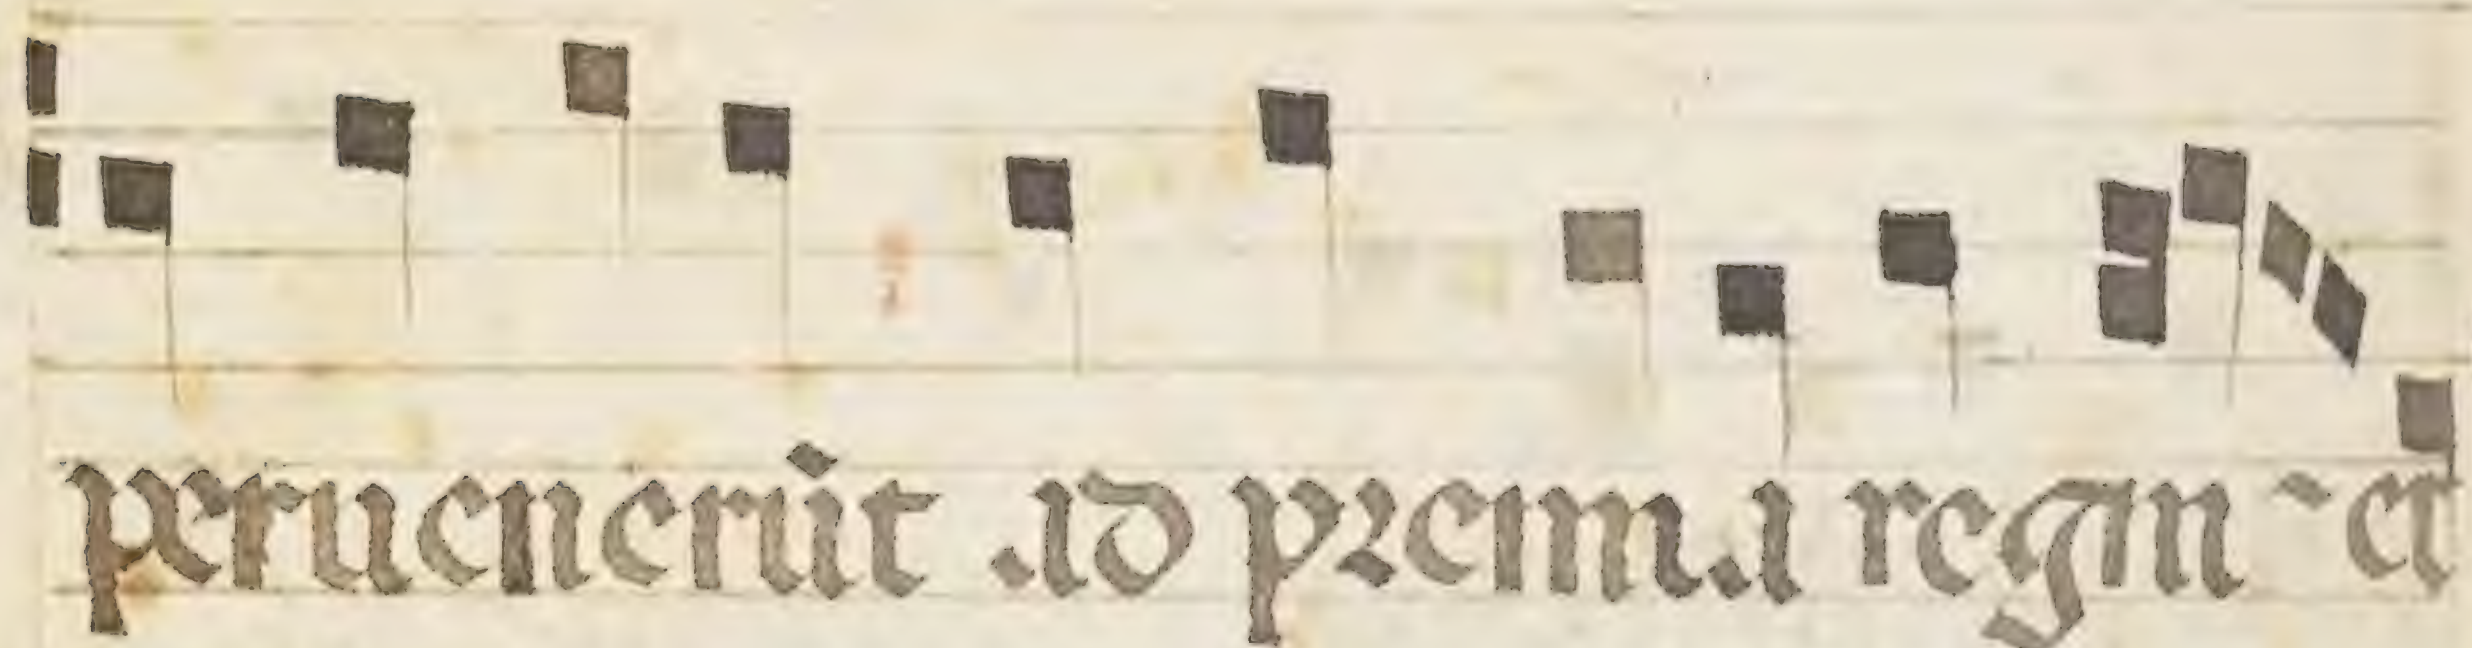 peruenerūt ad premia regni et